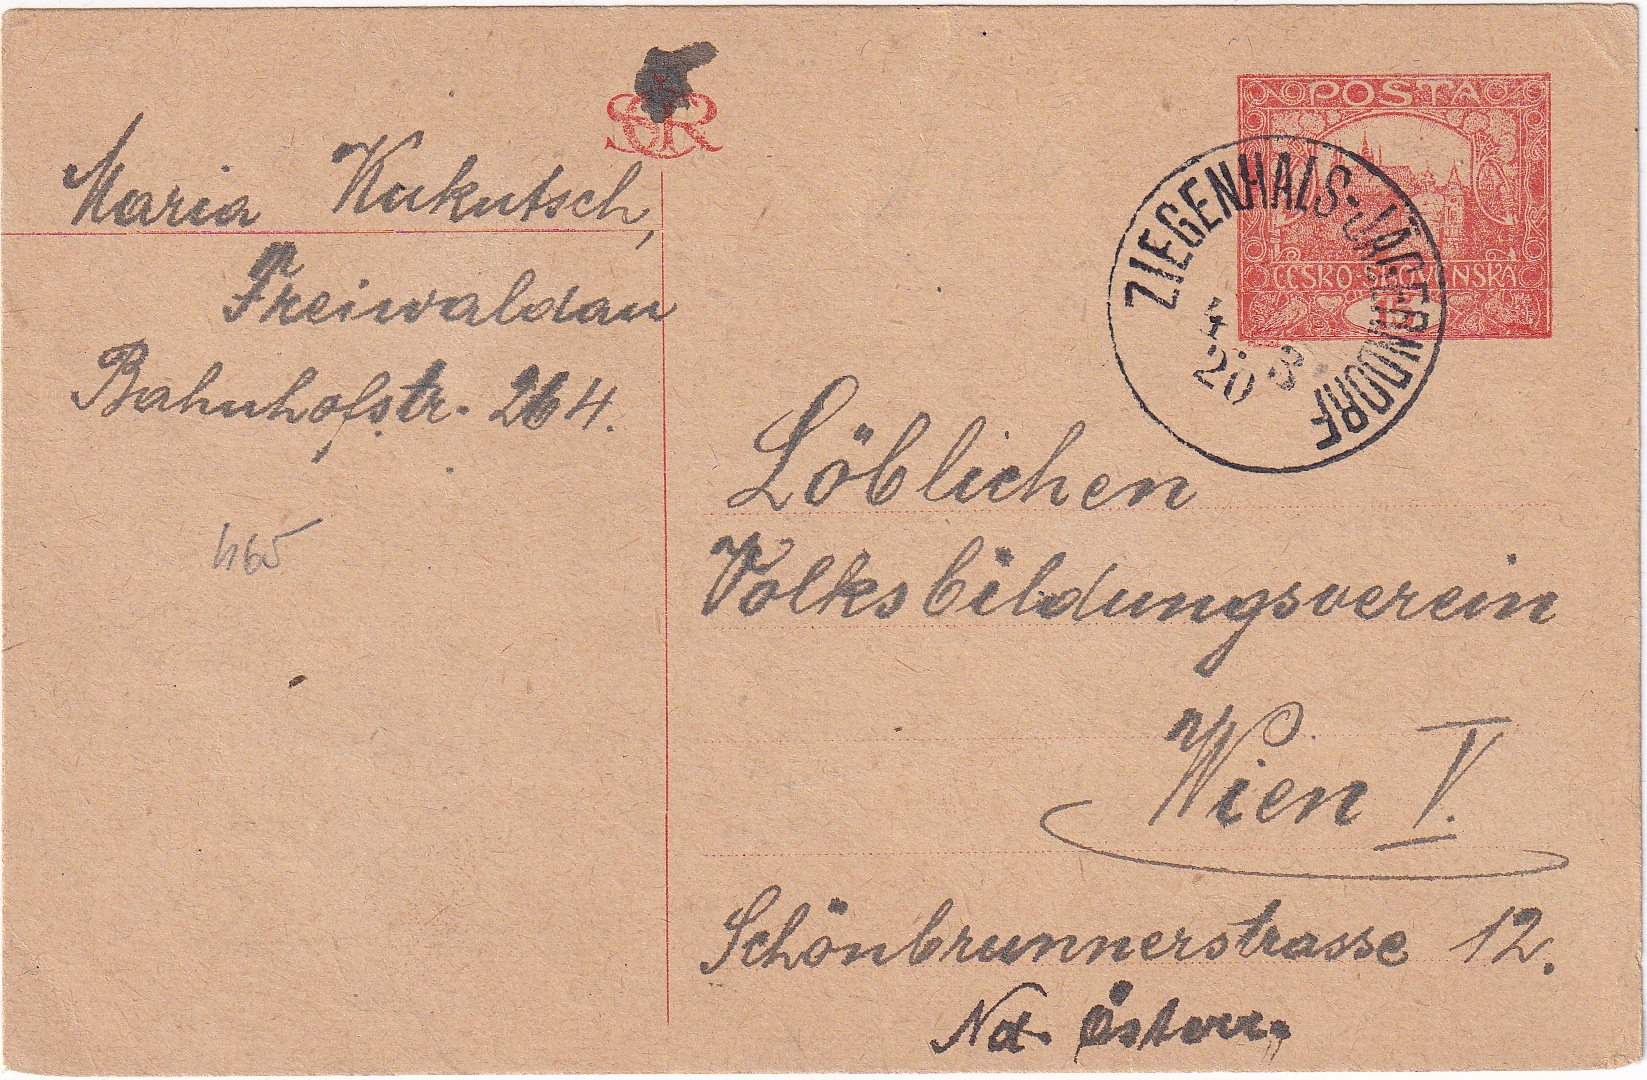 ČSR
POSTA
ČESKO-SLOVENSKÁ
ZIEGENHALS-JÄGERNDORF
4
3
20
Maria Kukutsch,
Freiwaldau
Bahnhofstr. 264.
465
Löblichen
Volksbildungsverein
Wien V.
Schönbrunnerstrasse 12.
Nd. Österr.